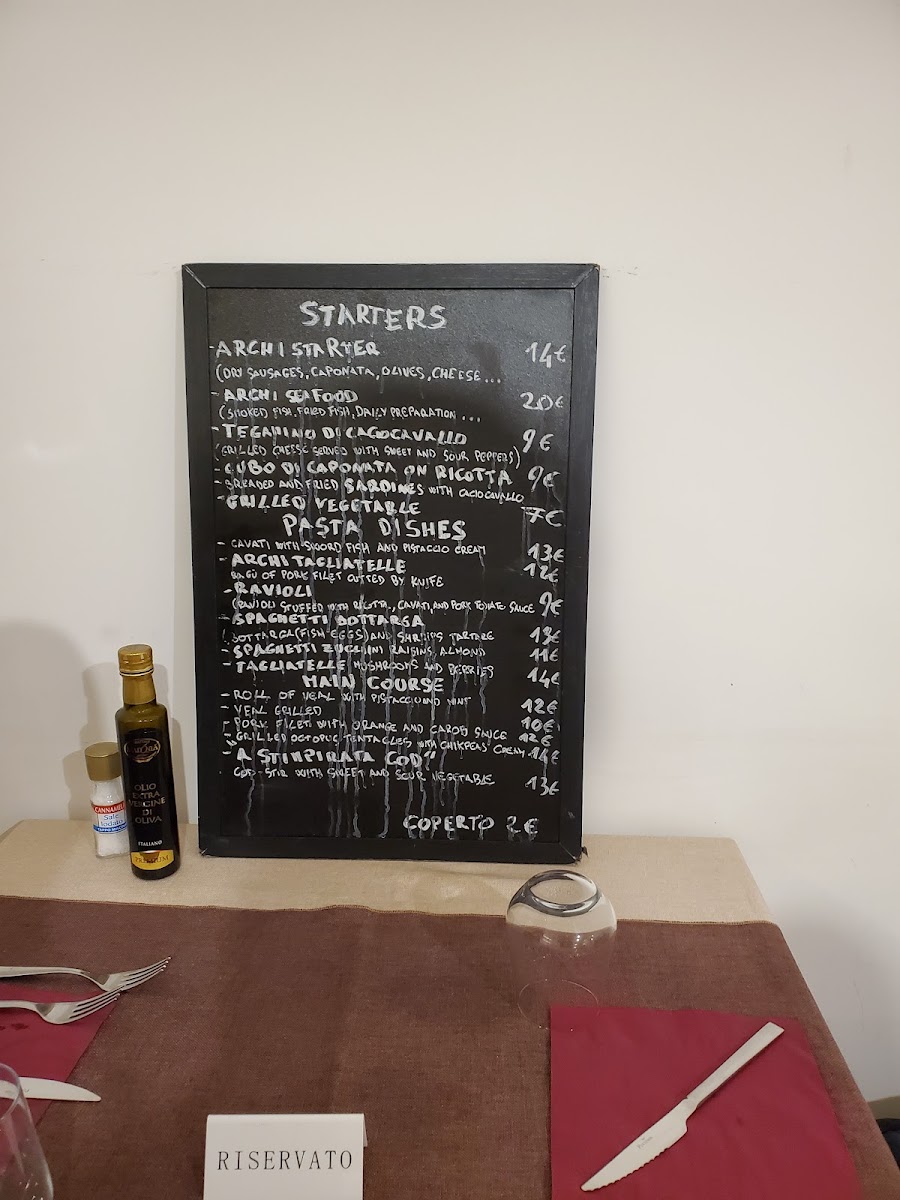 STARTERS
- ARCHI STARTER 14€
(DRY SAUSAGES, CAPONATA, OLIVES, CHEESE...
- ARCHI SEAFOOD 20€
(SMOKED FISH, FRIED FISH, DAILY PREPARATION...
- TEGAMINO DI CACIOCAVALLO 9€
(GRILLED CHEESE SERVED WITH SWEET AND SOUR PEPPERS)
- CUBO DI CAPONATA ON RICOTTA 9€
- BREADED AND FRIED SARDINES WITH CACIOCAVALLO
- GRILLED VEGETABLE 7€
PASTA DISHES
- CAVATI WITH SWORD FISH AND PISTACCIO CREAM 13€
- ARCHI TAGLIATELLE 12€
RAGÙ OF PORK FILET CUTTED BY KNIFE
- RAVIOLI 9€
(RAVIOLI STUFFED WITH RICOTTA, CAVATI, AND PORK TOMATO SAUCE
- SPAGHETTI BOTTARGA 13€
(BOTTARGA (FISH EGGS) AND SHRIMPS TARTARE
- SPAGHETTI ZUCCHINI RAISINS, ALMOND 11€
- TAGLIATELLE MUSHROOMS AND BERRIES 14€
MAIN COURSE
- ROLL OF VEAL WITH PISTACCIO AND MINT 12€
- VEAL GRILLED 10€
- PORK FILET WITH ORANGE AND CAROB SAUCE 12€
- GRILLED OCTOPUS TENTACLES WITH CHIKPEAS CREAM 14€
- "A STIMPIRATA COD"
COD STIR WITH SWEET AND SOUR VEGETABLE 13€
COPERTO 2€
OLIO
EXTRA
VERGINE
DI
OLIVA
ITALIANO
PREMIUM
CANNAMELA
Sale
Iodato
RISERVATO